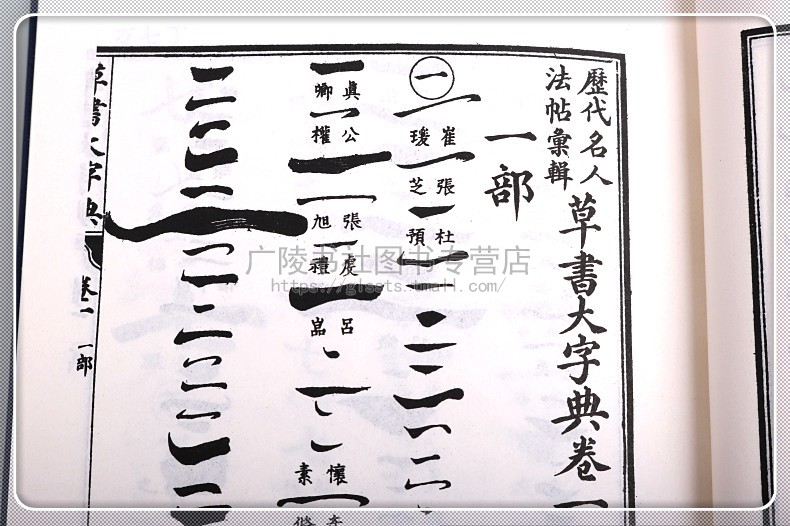 歷代名人
法帖彙輯
草書大字典卷一
一部
一
崔瑗
張芝
杜預
眞卿
公權
張旭
虔禮
呂嵒
懷素
草書大字典
卷一
一部
广陵书社图书专营店
https://glssts.tmall.com/